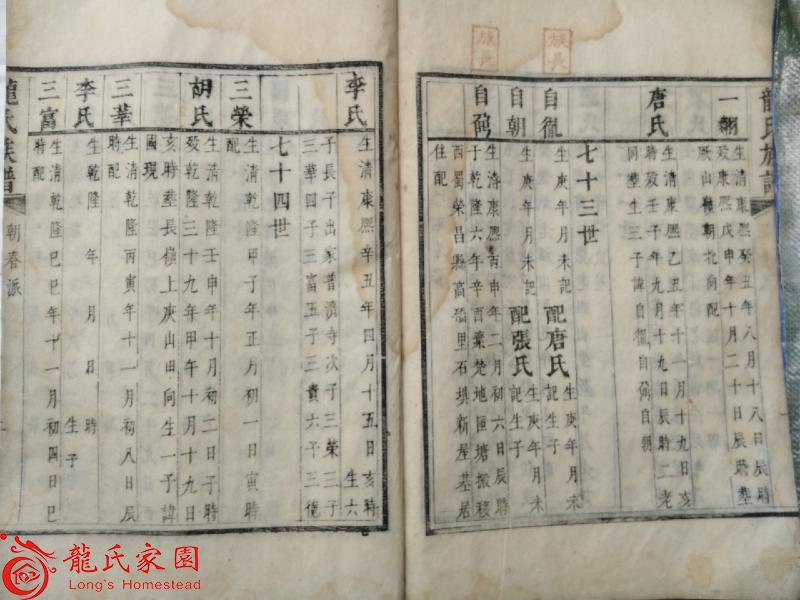 龍氏族譜
一翱
生清康熙癸丑年八月十八日辰時
歿康熙戊申年十月二十日辰時塟
厥山嶺朝北向配
唐氏
生清康熙乙丑年十一月十九日亥
時歿壬子年九月十九日辰時二老
同塋生三子諱自俻自朝
七十三世
族長
自
生庚年月未記
配唐氏
生庚年月未
記生子
自朝
生庚年月未記
配張氏
生庚年月未
記生子
族長
自俻
生清康熙丙申年二月初六日辰時
于乾隆六年辛酉棄楚地匣塘搬移
西蜀榮昌縣高橋里石垻新屋基居
住配
李氏
生清康熙辛丑年四月十五日亥時
生六
子長子出家普濟寺次子三榮三子
三華四子三富五子三貴六子三億
七十四世
三榮
生清乾隆甲子年正月初一日寅時
配
胡氏
生清乾隆壬申年十月初二日子時
歿乾隆三十九年甲午十月十九日
亥時塟長嶺上庚山田向生一子諱
國現
三華
生清乾隆丙寅年十一月初八日辰
時配
李氏
生清乾隆 年 月 日 時
生子
三富
生清乾隆己巳年十一月初四日巳
時配
龍氏族譜
朝春派
龍氏家園
Long's Homestead